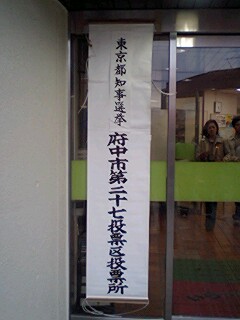 東京都知事選挙
府中市第三十七投票区投票所